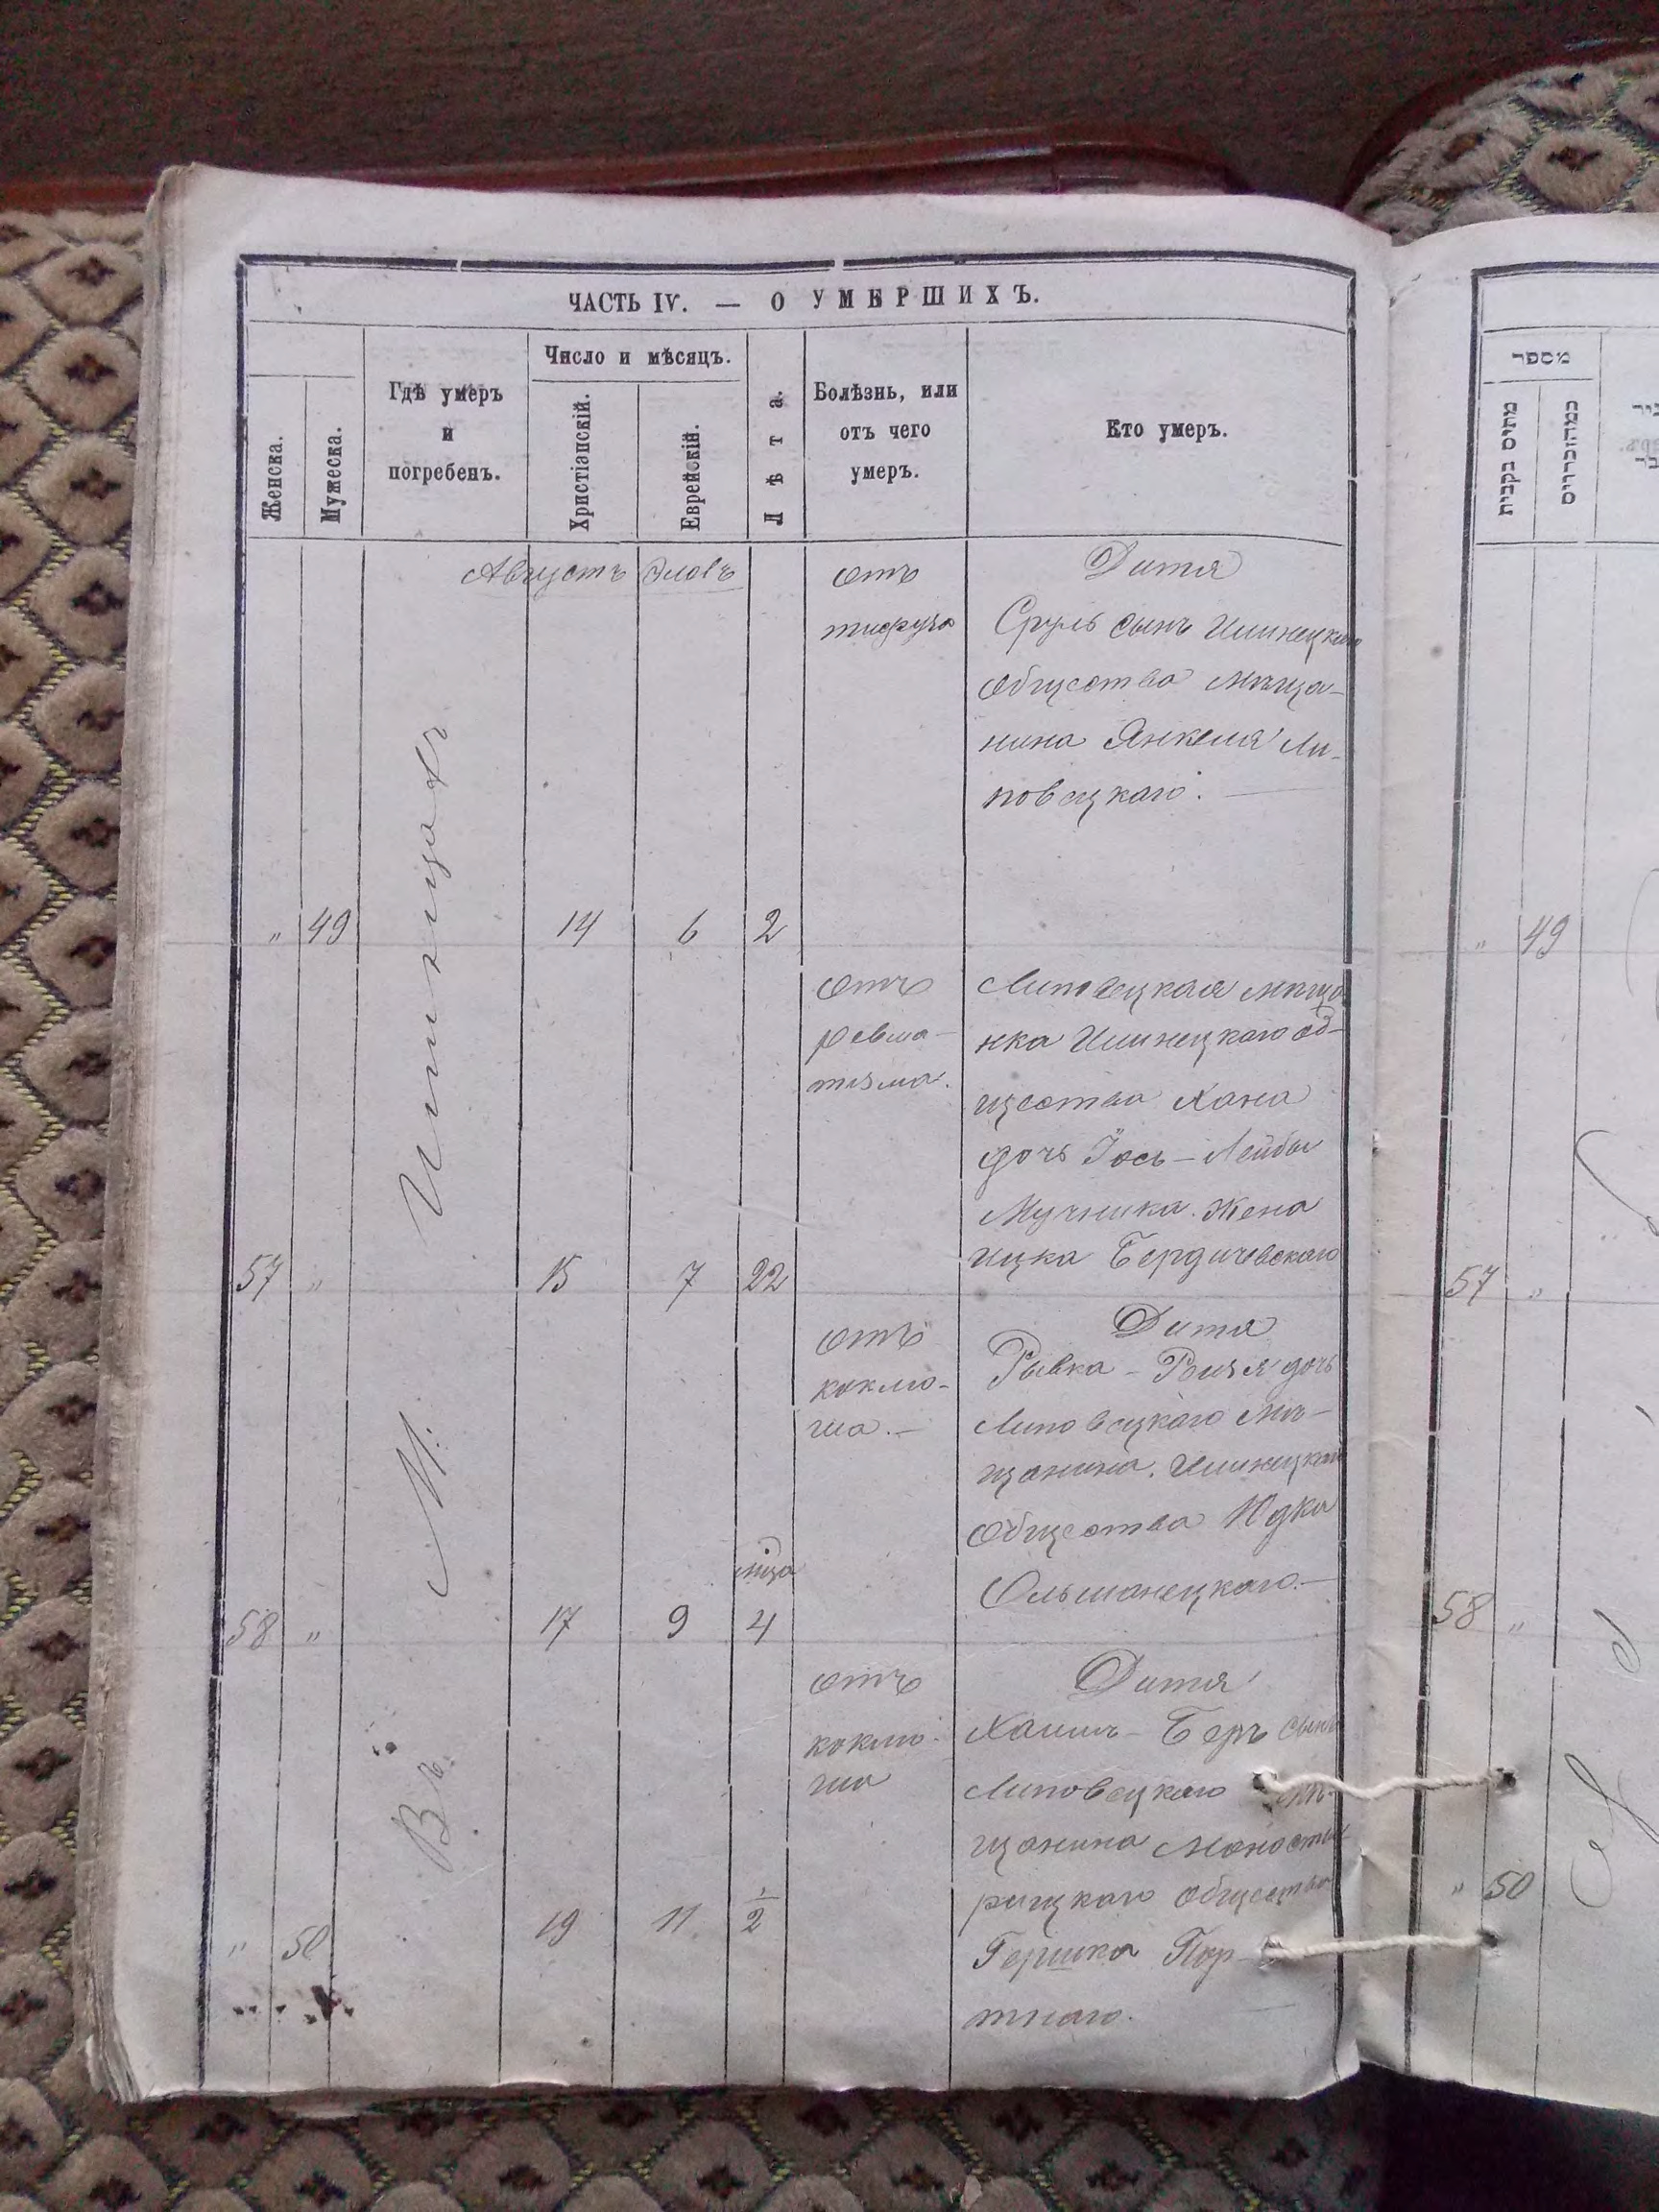 ЧАСТЬ IV. — О УМЕРШИХЪ.
Женска.
Мужеска.
Гдѣ умеръ
и
погребенъ.
Число и мѣсяцъ.
Христіанскій.
Еврейскій.
Лѣта.
Болѣзнь, или
отъ чего
умеръ.
Кто умеръ.
Августъ Элолъ
отъ
тифуса
Дитя
Сруль сынъ Ильинецкаго
общества мѣща-
нина Янкеля Ли-
повецкаго. —
" 49 14 6 2
отъ
ревма-
тизма.
Липовецкая мѣща
нка Ильинецкаго об-
щества Хана
дочь Іось-Лейбы
Мучника. Жена
Ицка Бердичевскаго
57 " 15 7 22
отъ
коклю-
ша. —
Дитя
Рывка - Рейзя дочь
Липовецкаго мѣ-
щанина. Ильинецкаго
общества Юдка
Ольшанецкаго. —
мца
58 " 17 9 4
отъ
коклю-
ша
Дитя
Хаимъ - Беръ сынъ
Липовецкаго мѣ-
щанина Монасты-
рищкаго общества
Гершка Пор-
тнаго.
" 50 19 11 1/2
Въ М: Ильинцахъ
מספר
מתים נקבות
49
57 "
58 "
" 50